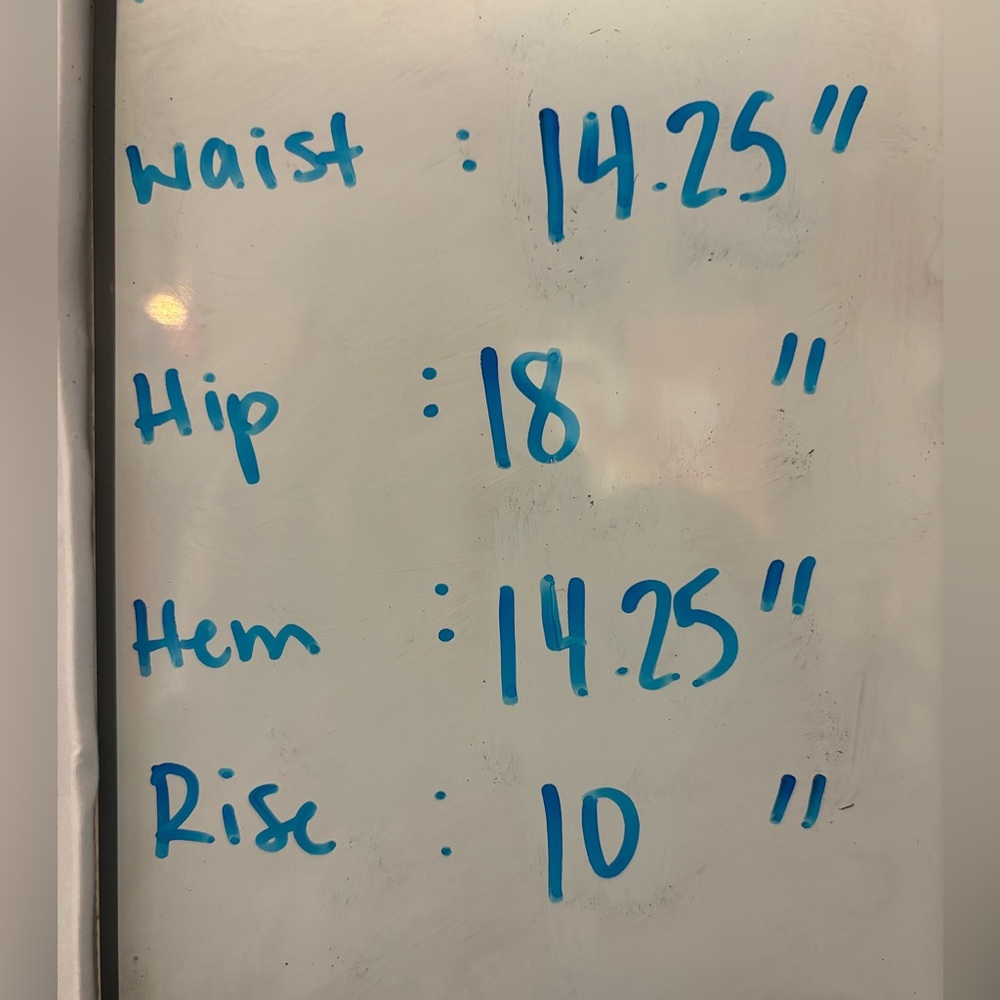 Waist : 14.25"
Hip : 18 "
Hem : 14.25"
Rise : 10 "